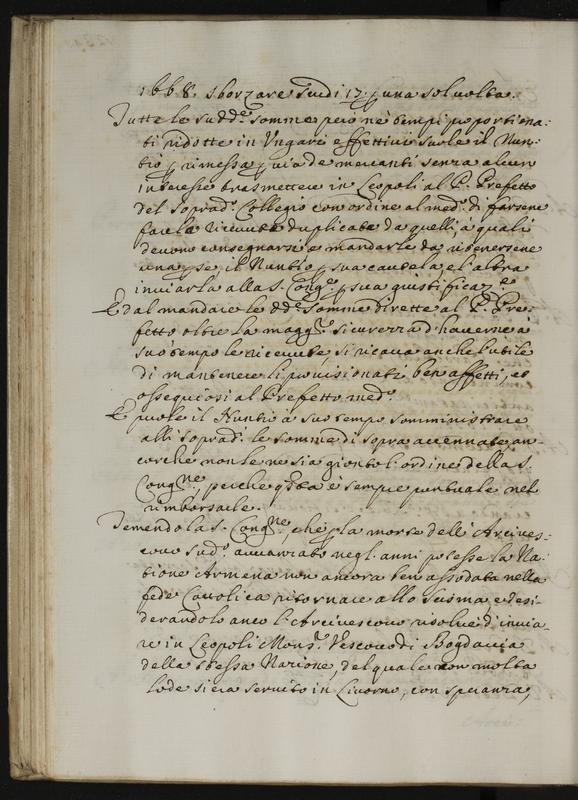 1668. sborzare scudi 17. p una sol volta.
Tutte le sudd.e somme però ne tempi proportiona-
ti ridotte in Ungari effettivi suole il Nun-
tio p rimessa p via de mercanti senza alcun
interesse trasmettere in Leopoli al P. Prefetto
del soprad.o Collegio con ordine al med.o di farsene
fare la ricevuta duplicata da quelli, à quali
devono consegnarsi e mandarle da ritenersene
una p se il Nuntio p sua cautela, e l'altra
inviarla alla S. Cong.e p sua giustificaz.e
E dal mandare le dd.e somme dirette al P. Pre-
fetto oltre la magg.re sicurezza d'haverne à
suo tempo le ricevute, si ricava anche l'utile
di mantenere li provisionati ben affetti, et
ossequiosi al Prefetto med.o
E puole il Nuntio à suo tempo somministrare
alli soprad.i le somme di sopra accennate, an-
corche non le ne sia gionto l'ordine della S.
Cong.ne, perche q.sta è sempre puntuale nel
rimborsarle.
Temendo la S. Cong.ne, che p la morte delli Arcives-
covo sud.o avanzato negl'anni potesse la Na-
tione Armena non ancora ben assodata nella
fede Catolica ritornare allo scisma, e desi-
derandolo anco l'Arcivescovo risolvé d'invia-
re in Leopoli Mons.r Vescovo di Bogdascia
della stessa Natione, del quale con molta
lode si era servito in Livorno, con speranza,